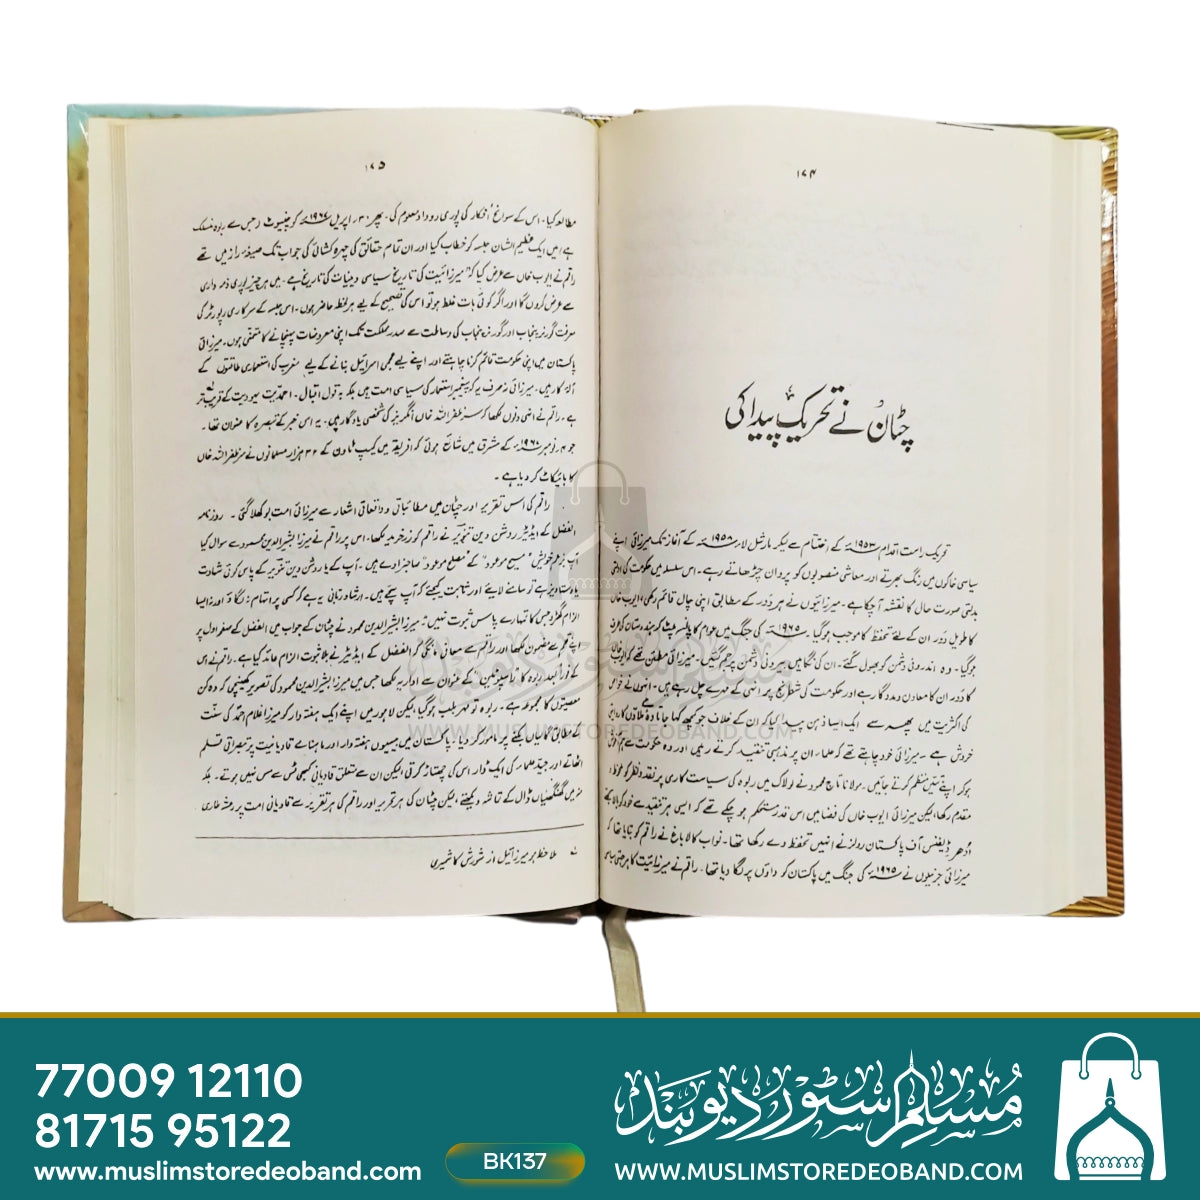 ۱۷۴
چٹان نے تحریک پیدا کی
تحریک راست اقدام ۱۹۵۳ء کے اختتام سے لیکر مارشل لاء ۱۹۵۸ء کے آغاز تک میرزائی اپنے
سیاسی خاکوں میں رنگ بھرتے اور معاشی منصوبوں کو پروان چڑھاتے رہے۔ اس سلسلہ میں حکومت کی ادلتی
بدلتی صورت حال کا نقشہ آچکا ہے۔ میرزائیوں نے ہر دَور کے مطابق اپنی چال قائم رکھی، ایوب خاں
کا طویل دَور ان کے لئے تحفظ کا موجب ہوگیا۔ ۱۹۶۵ء کی جنگ میں عوام کا پانسہ پلٹ کر ہندوستان کی طرف
ہوگیا۔ وہ اندرونی دشمن کو بھول گئے۔ ان کی نگاہیں بیرونی دشمن پر جم گئیں۔ میرزائی مطمئن تھے کہ ایوب خاں
کا دَور ان کا معاون و مددگار ہے اور حکومت کی شطرنج پر انہی کے مہرے چل رہے ہیں۔ انہوں نے خواص
کی اکثریت میں پھیر سے ایک ایسا ذہن پیدا کیا کہ ان کے خلاف جو کچھ کہا جاتا وہ ملاؤں کا روایتی
خروش ہے۔ میرزائی خود چاہتے تھے کہ علماء ان پر مذہبی تنقید کرتے رہیں اور وہ حکومت سے ہم آغوش
ہوکر اپنے تئیں منظم کرتے جائیں۔ مولانا تاج محمود نے لولاک میں ربوہ کی سیاست کاری پر نقد و نظر کو ملحوظ و
مقدم رکھا، لیکن میرزائی ایوب خاں کی فضا میں اس قدر مستحکم ہو چکے تھے کہ ایسی ہر تنقید سے خود کو بالا سمجھتے
اُدھر ڈیفنس آف پاکستان رولز نے انہیں تحفظ دے رکھا تھا۔ نواب کالاباغ نے راقم کو بتایا تھا کہ
میرزائی جرنیلوں نے ۱۹۶۵ء کی جنگ میں پاکستان کو داؤں پر لگا دیا تھا۔ راقم نے میرزائیت کا ہر جہتی سیاسی
۱۷۵
مطالعہ کیا۔ اس کے سوانح افکار کی پوری روداد معلوم کی۔ پھر ۳۰، اپریل ۱۹۶۷ء کو چنیوٹ (جس سے ربوہ منسلک
ہے) میں ایک عظیم الشان جلسہ کو خطاب کیا اور ان تمام حقائق کی چہرہ کشائی کی جو اب تک صیغہ راز میں تھے
راقم نے ایوب خاں سے عرض کیا کہ "میرزائیت کی تاریخ سیاسی دینیات کی تاریخ ہے۔ میں ہر چیز پوری ذمہ داری
سے عرض کروں گا اور اگر کوئی بات غلط ہو تو اس کی تصحیح کے لیے ہر لحظہ حاضر ہوں۔ اس جلسہ کے سرکاری رپورٹر کی
معرفت گورنر پنجاب اور گورنر پنجاب کی وساطت سے صدر مملکت تک اپنی معروضات پہنچانے کا متمنی ہوں۔ میرزائی
پاکستان میں اپنی حکومت قائم کرنا چاہتے اور اپنے لیے عجمی اسرائیل بنانے کے لیے مغرب کی استعماری طاقتوں کے
آلہ کار ہیں۔ میرزائی نہ صرف یہ کہ پیغمبر استعمار کی سیاسی امت ہیں بلکہ بہ قول اقبال۔ احمدیت یہودیت کے قریب تر
ہے۔ راقم نے انہی دنوں لکھا کہ سر ظفر اللہ خاں انگریز کی شخصی یادگار ہیں۔ یہ اس خبر کے تبصرہ کا عنوان تھا۔
جو ۴، نومبر ۱۹۶۷ء کے مشرق میں شائع ہوئی کہ افریقہ میں کیپ ٹاون کے ۳۶ ہزار مسلمانوں نے سر ظفر اللہ خاں
کا بائیکاٹ کر دیا ہے۔
راقم کی اس تقریر اور چٹان میں مطالباتی و واقعاتی اشعار سے میرزائی امت بوکھلا گئی۔ روزنامہ
الفضل کے ایڈیٹر روشن دین تنویر نے راقم کو زر خرید لکھا۔ اس پر راقم نے میرزا بشیر الدین محمود سے سوال کیا
آپ بزعم خویش "مسیح موعود" کے "مصلح موعود" صاحبزادے ہیں۔ آپ کے یا روشن دین تنویر کے پاس کوئی شہادت
یا دستاویز ہے تو سامنے لائیے اور ثابت کیجئے کہ آپ سچے ہیں۔ ارشاد ربانی یہ ہے کہ کسی پر اتہام نہ لگاؤ اور نہ ایسا
الزام گھڑو جس کا تمہارے پاس ثبوت نہیں" میرزا بشیر الدین محمود نے چٹان کے جواب میں الفضل کے صفحہ اول پر
اپنے قلم سے مضمون لکھا اور راقم سے معافی مانگی کہ الفضل کے ایڈیٹر نے بلا ثبوت الزام عائد کیا ہے۔ راقم نے اس
کے فوراً بعد ربوہ کا "راسپوتین" کے عنوان سے اداریہ لکھا جس میں میرزا بشیر الدین محمود کی تصویر کھینچی کہ وہ کن
معصیتوں کا مجموعہ ہے۔ ربوہ تو مہر بلب ہوگیا، لیکن لاہور میں اپنے ایک ہفتہ وار کو میرزا غلام احمد کی سنّت
کے مطابق گالیاں بکنے پر مامور کر دیا۔ پاکستان میں بیسیوں ہفتہ وار اور ماہنامے قادیانیت پر میراثی قسلم
اٹھاتے اور جیّد علماء کی ایک ڈار اس کی چھتاڑ کرتی، لیکن ان سے متعلق قادیانی کبھی ٹس سے مس نہیں ہوتے۔ بلکہ
منہ میں گھنگھنیاں ڈال کے تماشہ دیکھتے، لیکن چٹان کی ہر تحریر اور راقم کی ہر تقریر سے قادیانی امت پر رعشہ طاری
ملاحظہ ہو میرزائیل از شورش کاشمیری
مسلم سٹور دیوبند
WWW.MUSLIMSTOREDEOBAND.COM
77009 12110
81715 95122
www.muslimstoredeoband.com
BK137
مسلم سٹور دیوبند
WWW.MUSLIMSTOREDEOBAND.COM